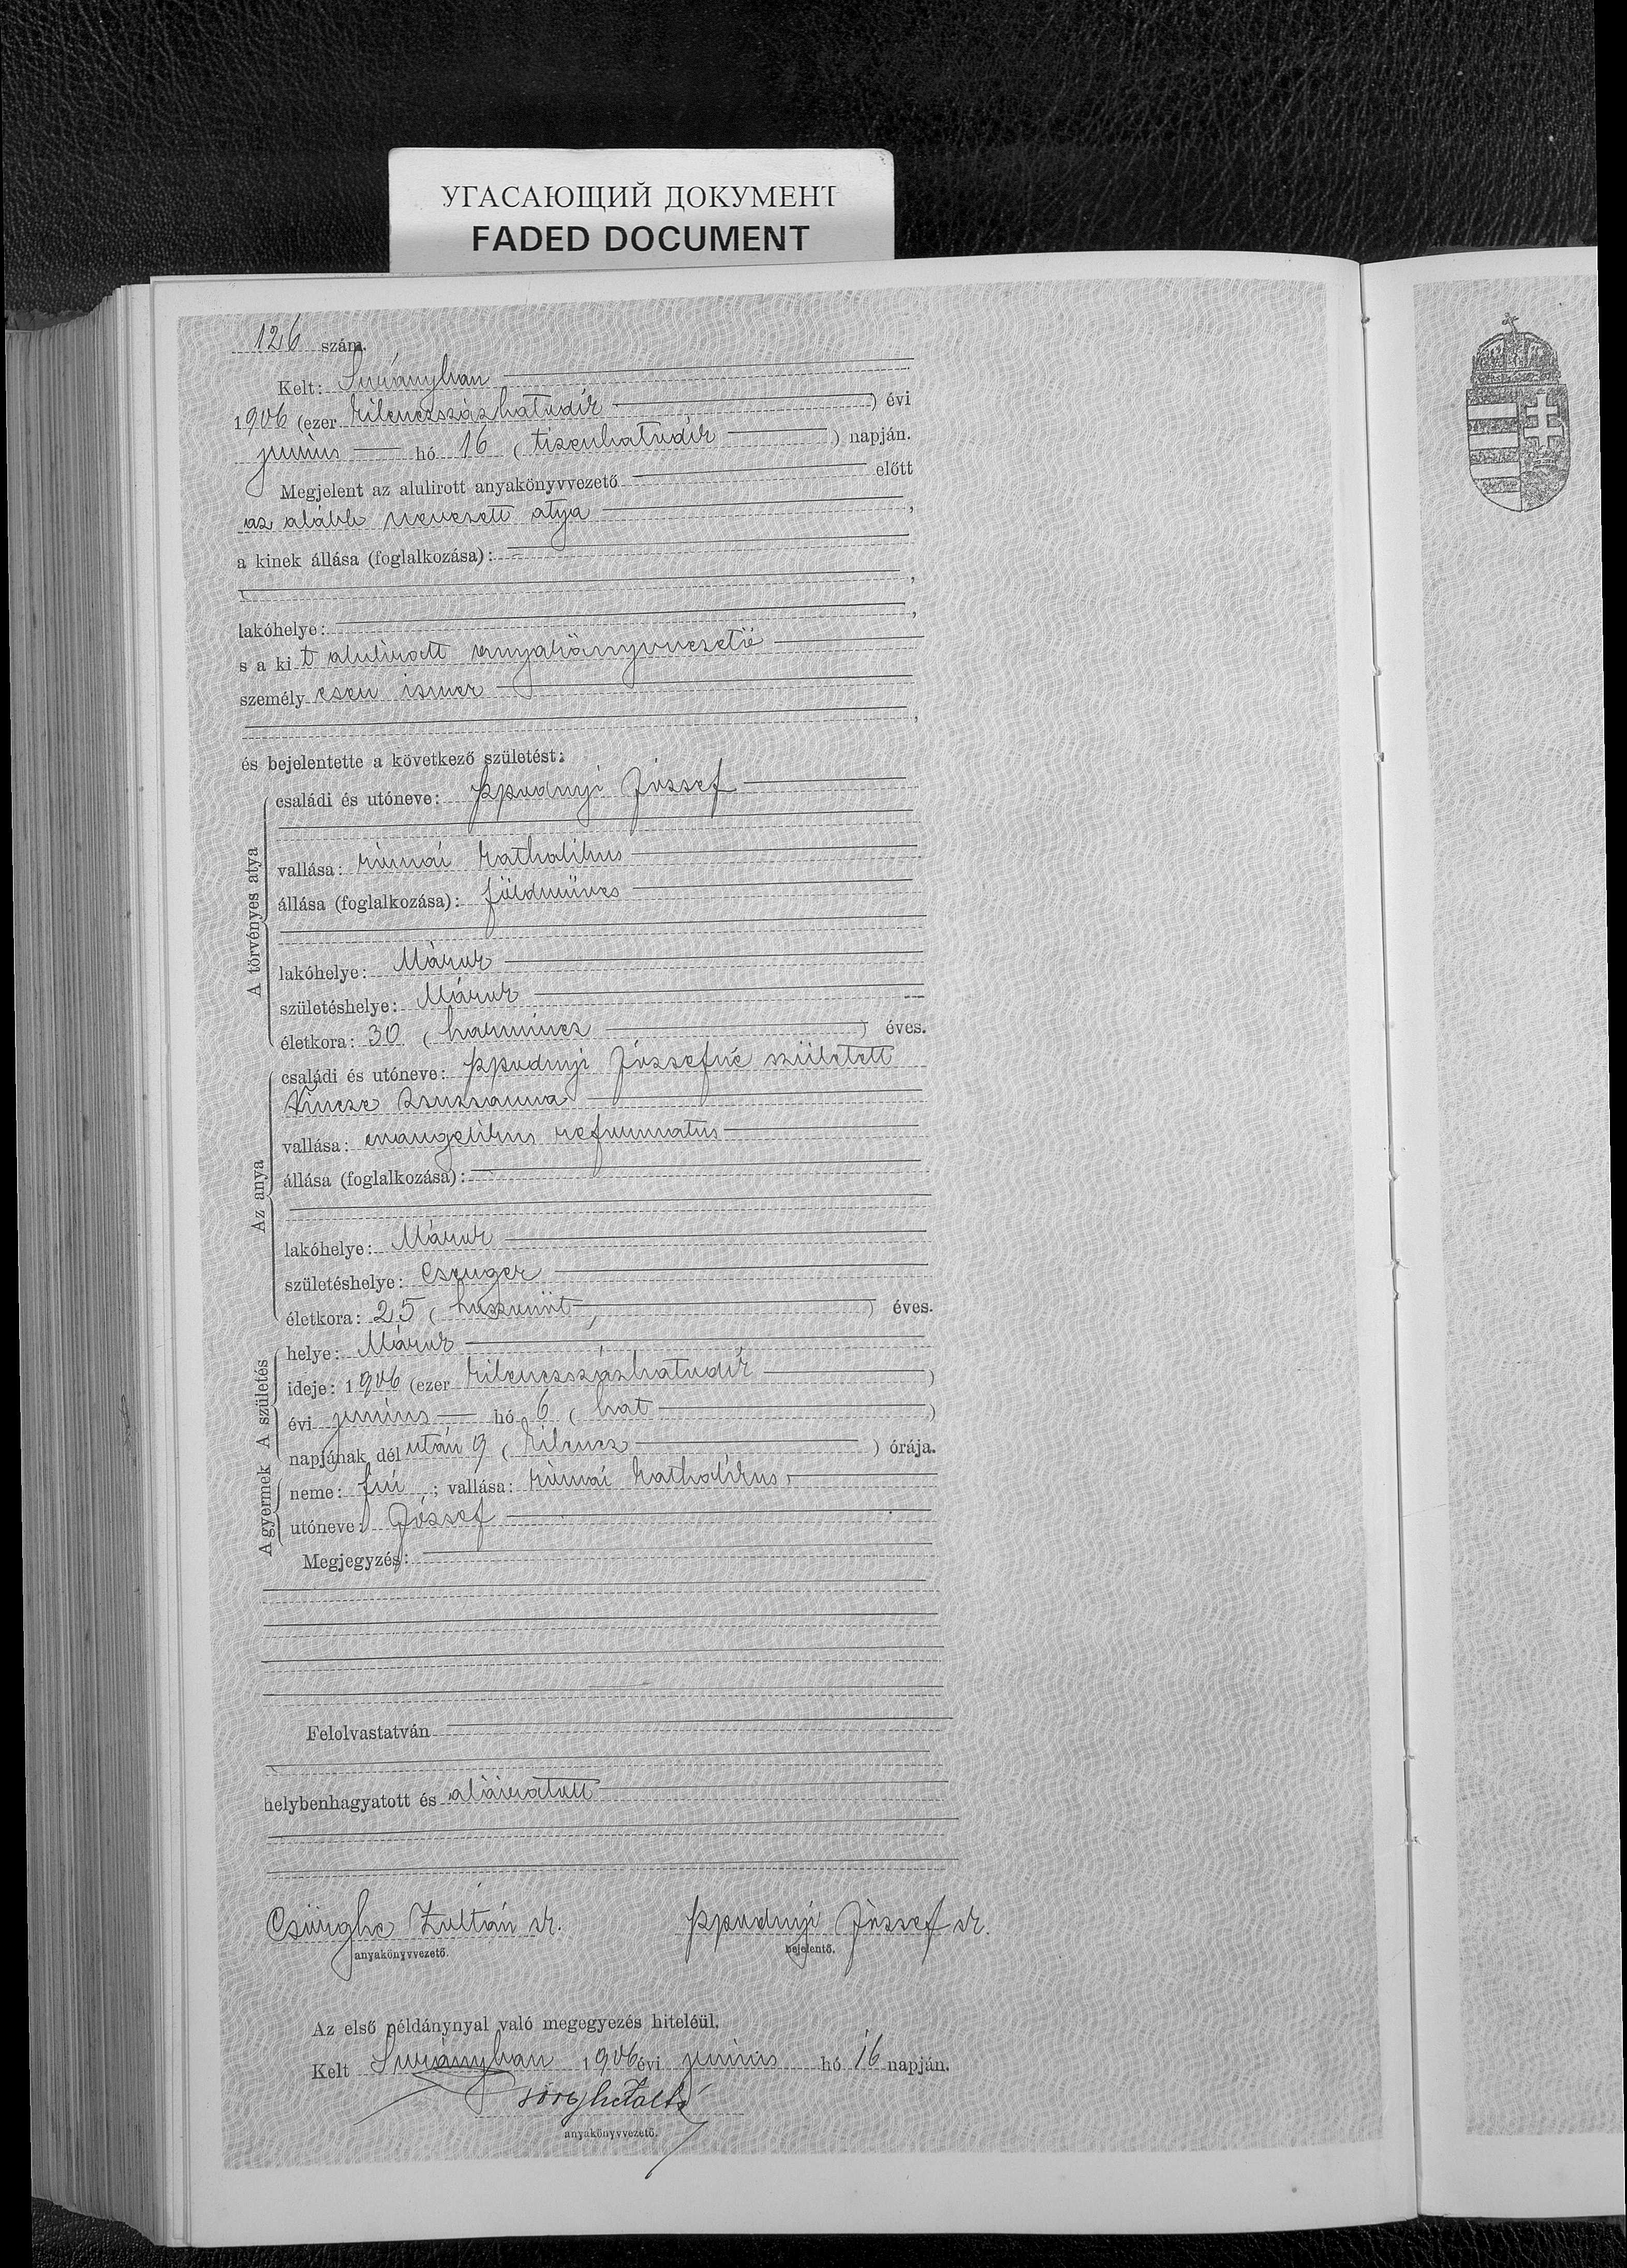 УГАСАЮЩИЙ ДОКУМЕНТ
FADED DOCUMENT
126 szám.
Kelt: Surányban
1906 (ezer kilenczszázhatodik) évi
junius hó 16 (tizenhatodik) napján.
Megjelent az alulirott anyakönyvvezető előtt
az alább nevezett atya,
a kinek állása (foglalkozása):
lakóhelye:
s a kit alulirott anyakönyvvezető
személyesen ismer
és bejelentette a következő születést:
A törvényes atya
családi és utóneve: József
vallása: római katholikus
állása (foglalkozása): földmüves
lakóhelye: Márok
születéshelye: Márok
életkora: 30 (harmincz) éves.
Az anya
családi és utóneve: Józsefné született
Vincze Zsuzsanna
vallása: evangelikus reformatus
állása (foglalkozása):
lakóhelye: Márok
születéshelye: Csenger
életkora: 25 (huszonöt) éves.
A gyermek A születés
helye: Márok
ideje: 1906 (ezer kilenczszázhatodik)
évi junius hó 6 (hat)
napjának dél után 9 (kilencz) órája.
neme: fiú; vallása: római katholikus
utóneve: József
Megjegyzés:
Felolvastatván
helybenhagyatott és aláiratott
Zoltán sk. József sk.
anyakönyvvezető. bejelentő.
Az első példánynyal való megegyezés hiteléül.
Kelt Surányban 1906 évi junius hó 16 napján.
anyakönyvvezető.